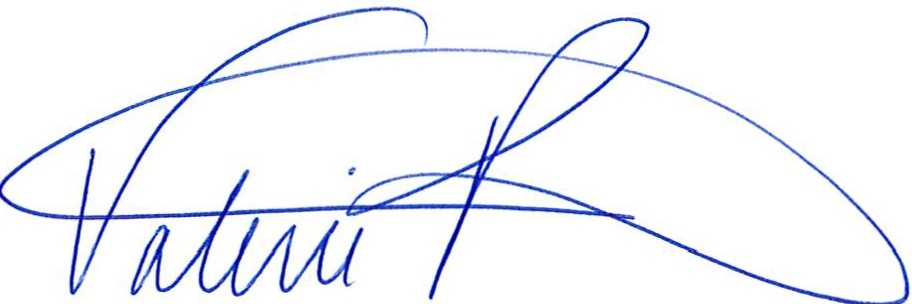 Valerie R